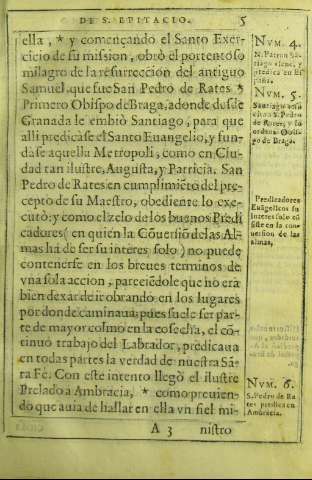 DE S. EPITACIO. 5
ella, * y començando el Santo Exer-
cicio de su mission, obrò el portentoso
milagro de la resurreccion del antiguo
Samuel, que fue San Pedro de Rates *
Primero Obispo de Braga, adonde desde
Granada le embiò Santiago, para que
alli predicàse el Santo Euangelio, y fun-
dàse aquella Metropoli, como en Ciu-
dad tan ilustre, Augusta, y Patricia. San
Pedro de Rates en cumplimiẽto del pre-
cepto de su Maestro, obediente lo exe-
cutò: y como el zelo de los buenos Predi
cadores (en quiẽn la Cõuersiõ de las Al-
mas hà de ser su interès solo) no puede
contenerse en los breues terminos de
vna sola accion, pareciẽdole que no erà
bien dexar de ir obrando en los lugares
por donde caminaua, pues suele ser par-
te de mayor colmo en la cosecha, el cõ-
tinuo trabajo del Labrador, predicaua
en todas partes la verdad de nuestra Sã-
ta Fè. Con este intento llegò el ilustre
Prelado à Ambracia, * como preuien-
do que auia de hallar en ella vn fiel mi-
A 3 nistro
NVM. 4.
N. Patron San-
tiago
predica en Es
paña.
NVM. 5.
Santiago
à S. Pedro
de Rates, y lo
ordena Obis-
po de Braga.
Predicadores
Euãgelicos su
interes solo cõ
siste en la con-
uersion de las
almas.
NVM. 6.
S. Pedro de Ra
tes predica en
Ambracia.